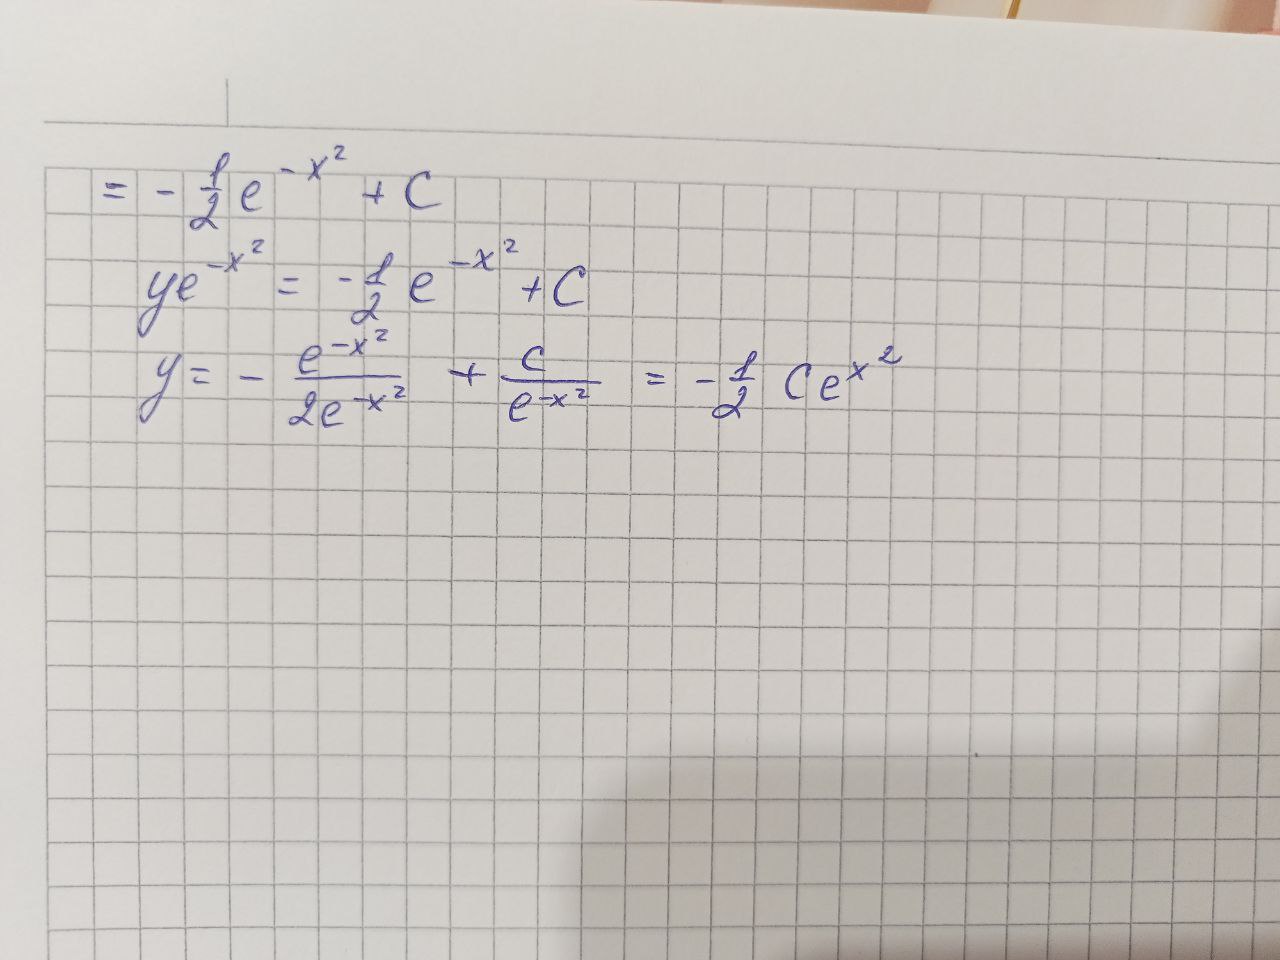 = - 1/2 e^{-x^2} + C
ye^{-x^2} = - 1/2 e^{-x^2} + C
y = - e^{-x^2}/2e^{-x^2} + C/e^{-x^2} = - 1/2 Ce^{x^2}